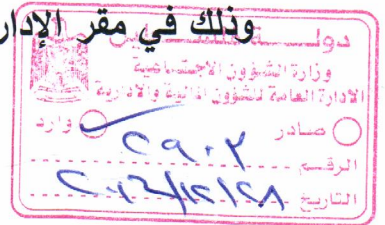 وذلك في مقر الإدار
دولـــة فلسطين
وزارة الشؤون الاجتماعية
الادارة العامة للشؤون المالية والادارية
صادر وارد
الرقم ٢٩٠٢
التاريخ